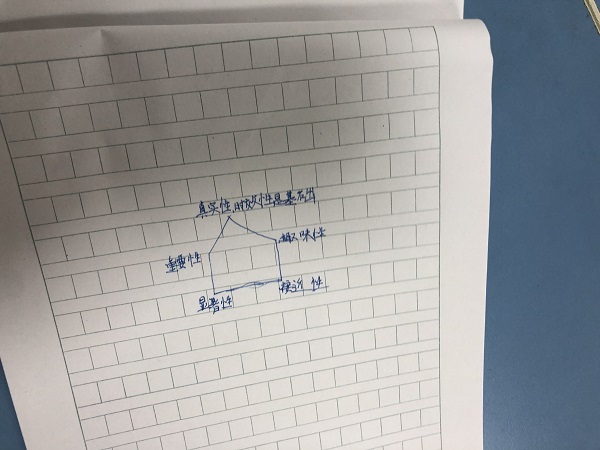 真实性时效性是基石出
趣味性
重要性
接近性
显著性